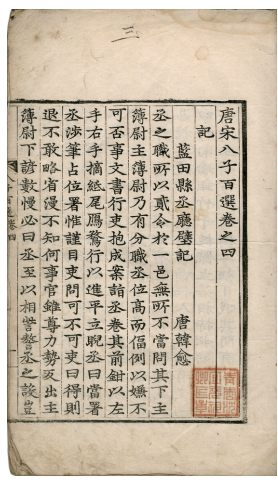 三
唐宋八子百選卷之四
記
藍田縣丞廳壁記
唐韓愈
丞之職所以貳令於一邑無所不當問其下主
簿尉主簿尉乃有分職丞位高而偪例以嫌不
可否事文書行吏抱成案詣丞卷其前鉗以左
手右手摘紙尾鴈鶩行以進平立睨丞曰當署
丞涉筆占位署惟謹目吏問可不可吏曰得則
退不敢略省漫不知何事官雖尊力勢反出主
簿尉下諺數慢必曰丞至以相訾謷丞之設豈